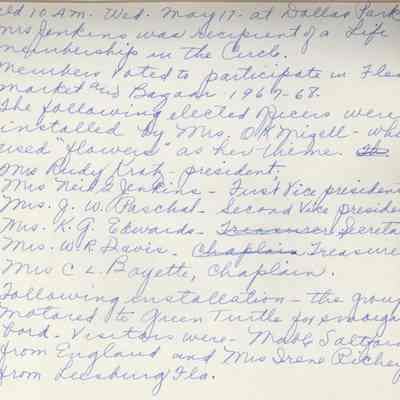 eld 10 A.M. Wed. May 17- at Dallas Park
Mrs Jenkins was recipient of a Life
membership in the Circle.
Members voted to participate in Flea
Market and Bazaar 1967-68.
The following elected officers were
installed by Mrs. O K Mizell - who
used "flowers" as her theme.
Mrs Rudy Kratz - president.
Mrs Neil S Jenkins - First Vice president
Mrs. J. W. Paschal - Second Vice preside
Mrs. K. G. Edwards - Treasurer Secreta
Mrs. W R Davis - Chaplain Treasure
Mrs C L Boyette, Chaplain.
Following installation - the group
motored to Green Turtle for smorgas
bord - Visitors were - Mabb
from England and Mrs Irene Richey
from Leesburg Fla.